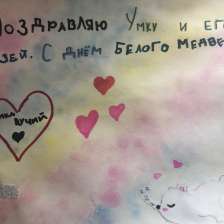 ПОЗДРАВЛЯЮ УМКУ И ЕГ
ЗЕЙ. С ДНЁМ БЕЛОГО МЕДВЕ
ЛУЧИЙ